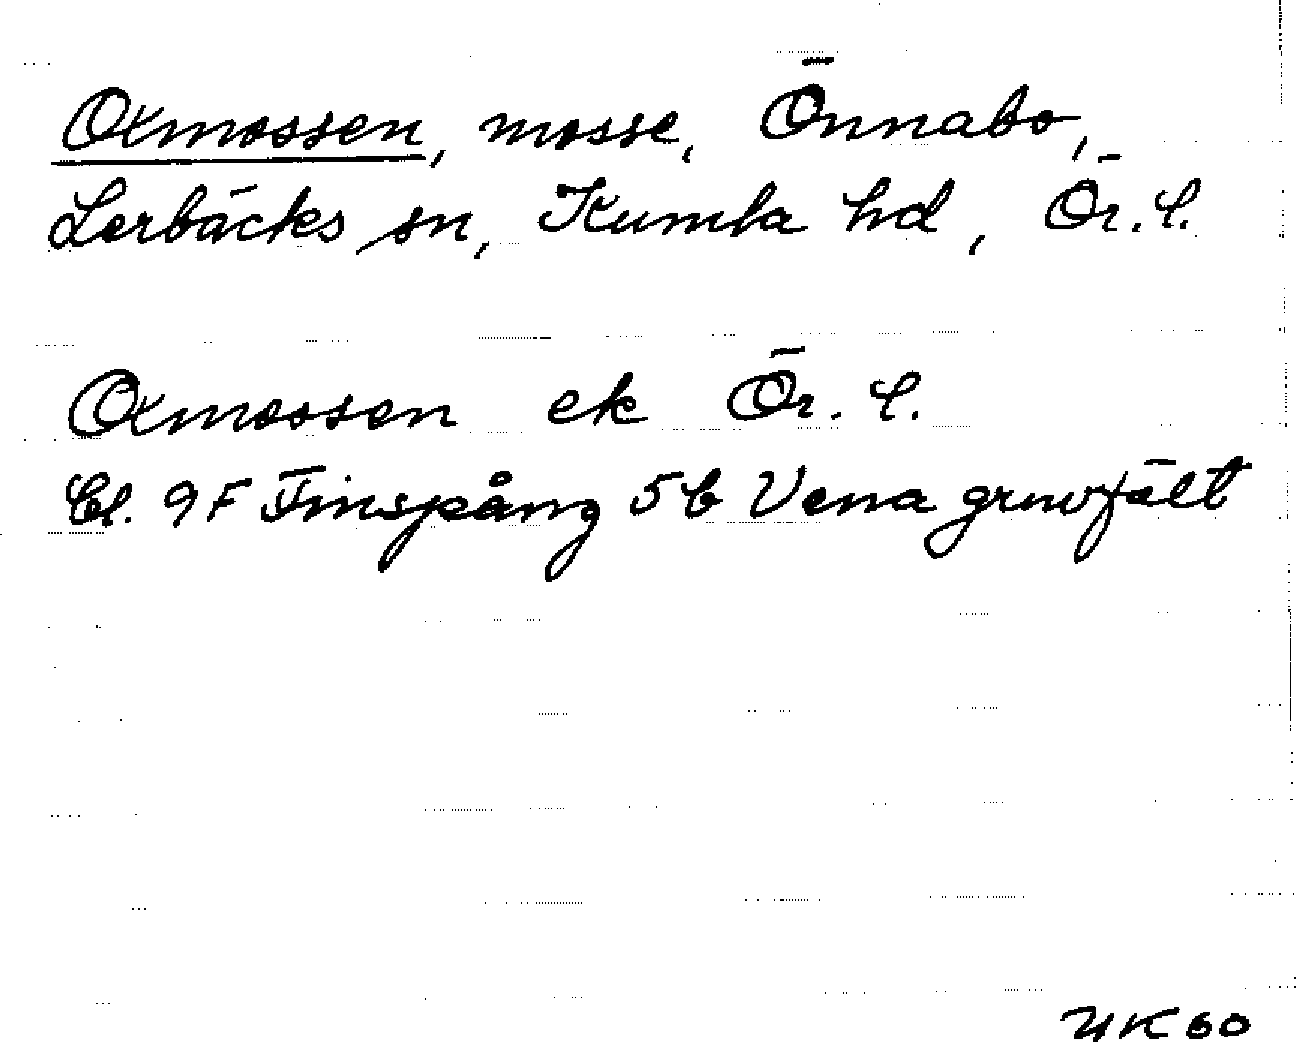 Oxmossen, mosse, Önnabo,
Lerbäcks sn, Kumla hd, Ör. l.
Oxmossen ek Ör. l.
Bl. 9F Finspång 5b Vena gruvfält
YK60